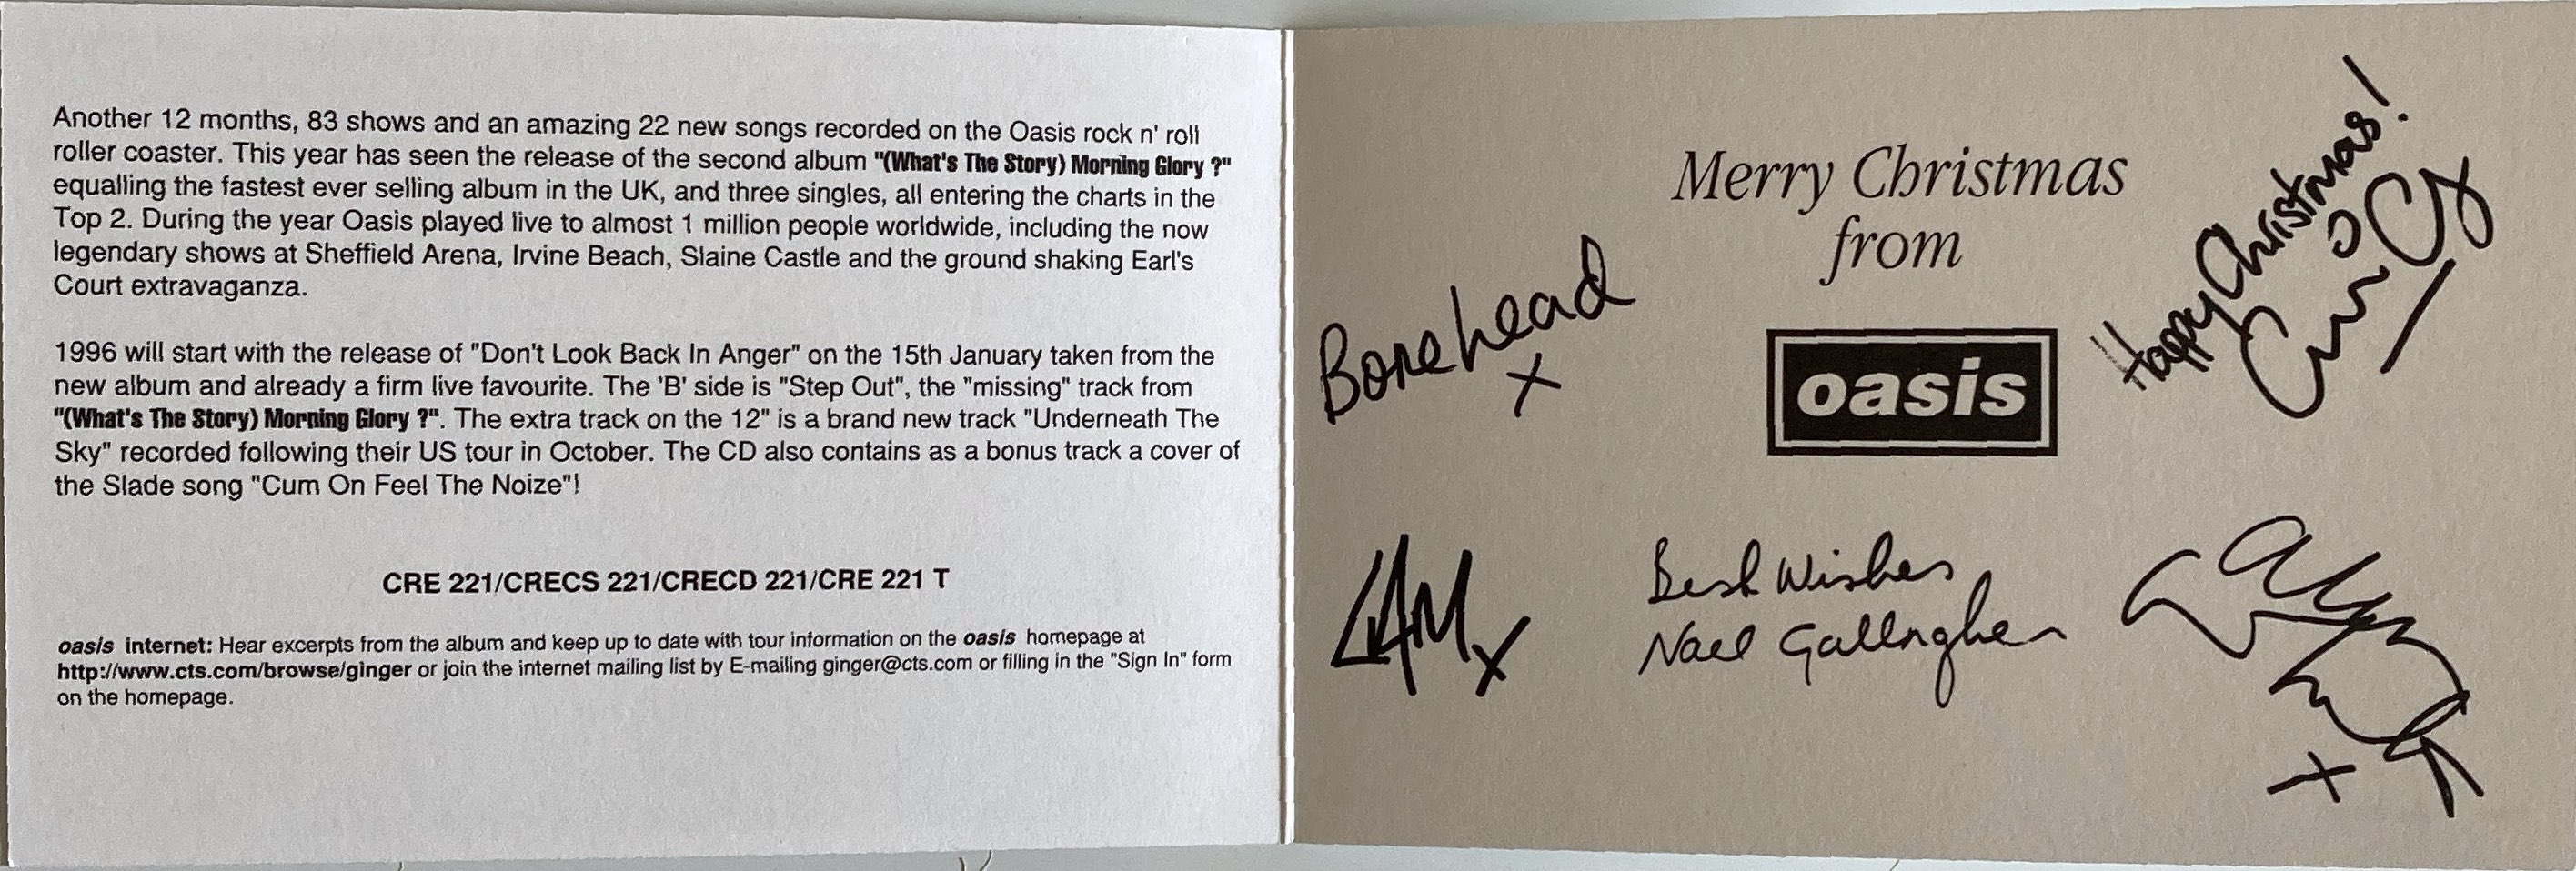 Another 12 months, 83 shows and an amazing 22 new songs recorded on the Oasis rock n' roll
roller coaster. This year has seen the release of the second album "(What's The Story) Morning Glory ?"
equalling the fastest ever selling album in the UK, and three singles, all entering the charts in the
Top 2. During the year Oasis played live to almost 1 million people worldwide, including the now
legendary shows at Sheffield Arena, Irvine Beach, Slaine Castle and the ground shaking Earl's
Court extravaganza.
1996 will start with the release of "Don't Look Back In Anger" on the 15th January taken from the
new album and already a firm live favourite. The 'B' side is "Step Out", the "missing" track from
"(What's The Story) Morning Glory ?". The extra track on the 12" is a brand new track "Underneath The
Sky" recorded following their US tour in October. The CD also contains as a bonus track a cover of
the Slade song "Cum On Feel The Noize"!
CRE 221/CRECS 221/CRECD 221/CRE 221 T
oasis internet: Hear excerpts from the album and keep up to date with tour information on the oasis homepage at
http://www.cts.com/browse/ginger or join the internet mailing list by E-mailing ginger@cts.com or filling in the "Sign In" form
on the homepage.
Merry Christmas
from
oasis
Happy Christmas!
Bonehead
x
LiAM x
Best Wishes
Noel Gallagher
x